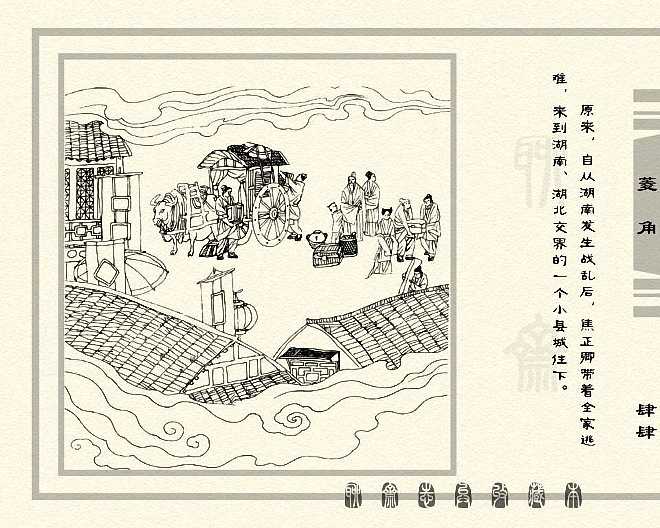 菱角
肆肆
原来，自从湖南发生战乱后，焦正卿带着全家逃
难，来到湖南、湖北交界的一个小县城住下。
聊斋志异收藏本